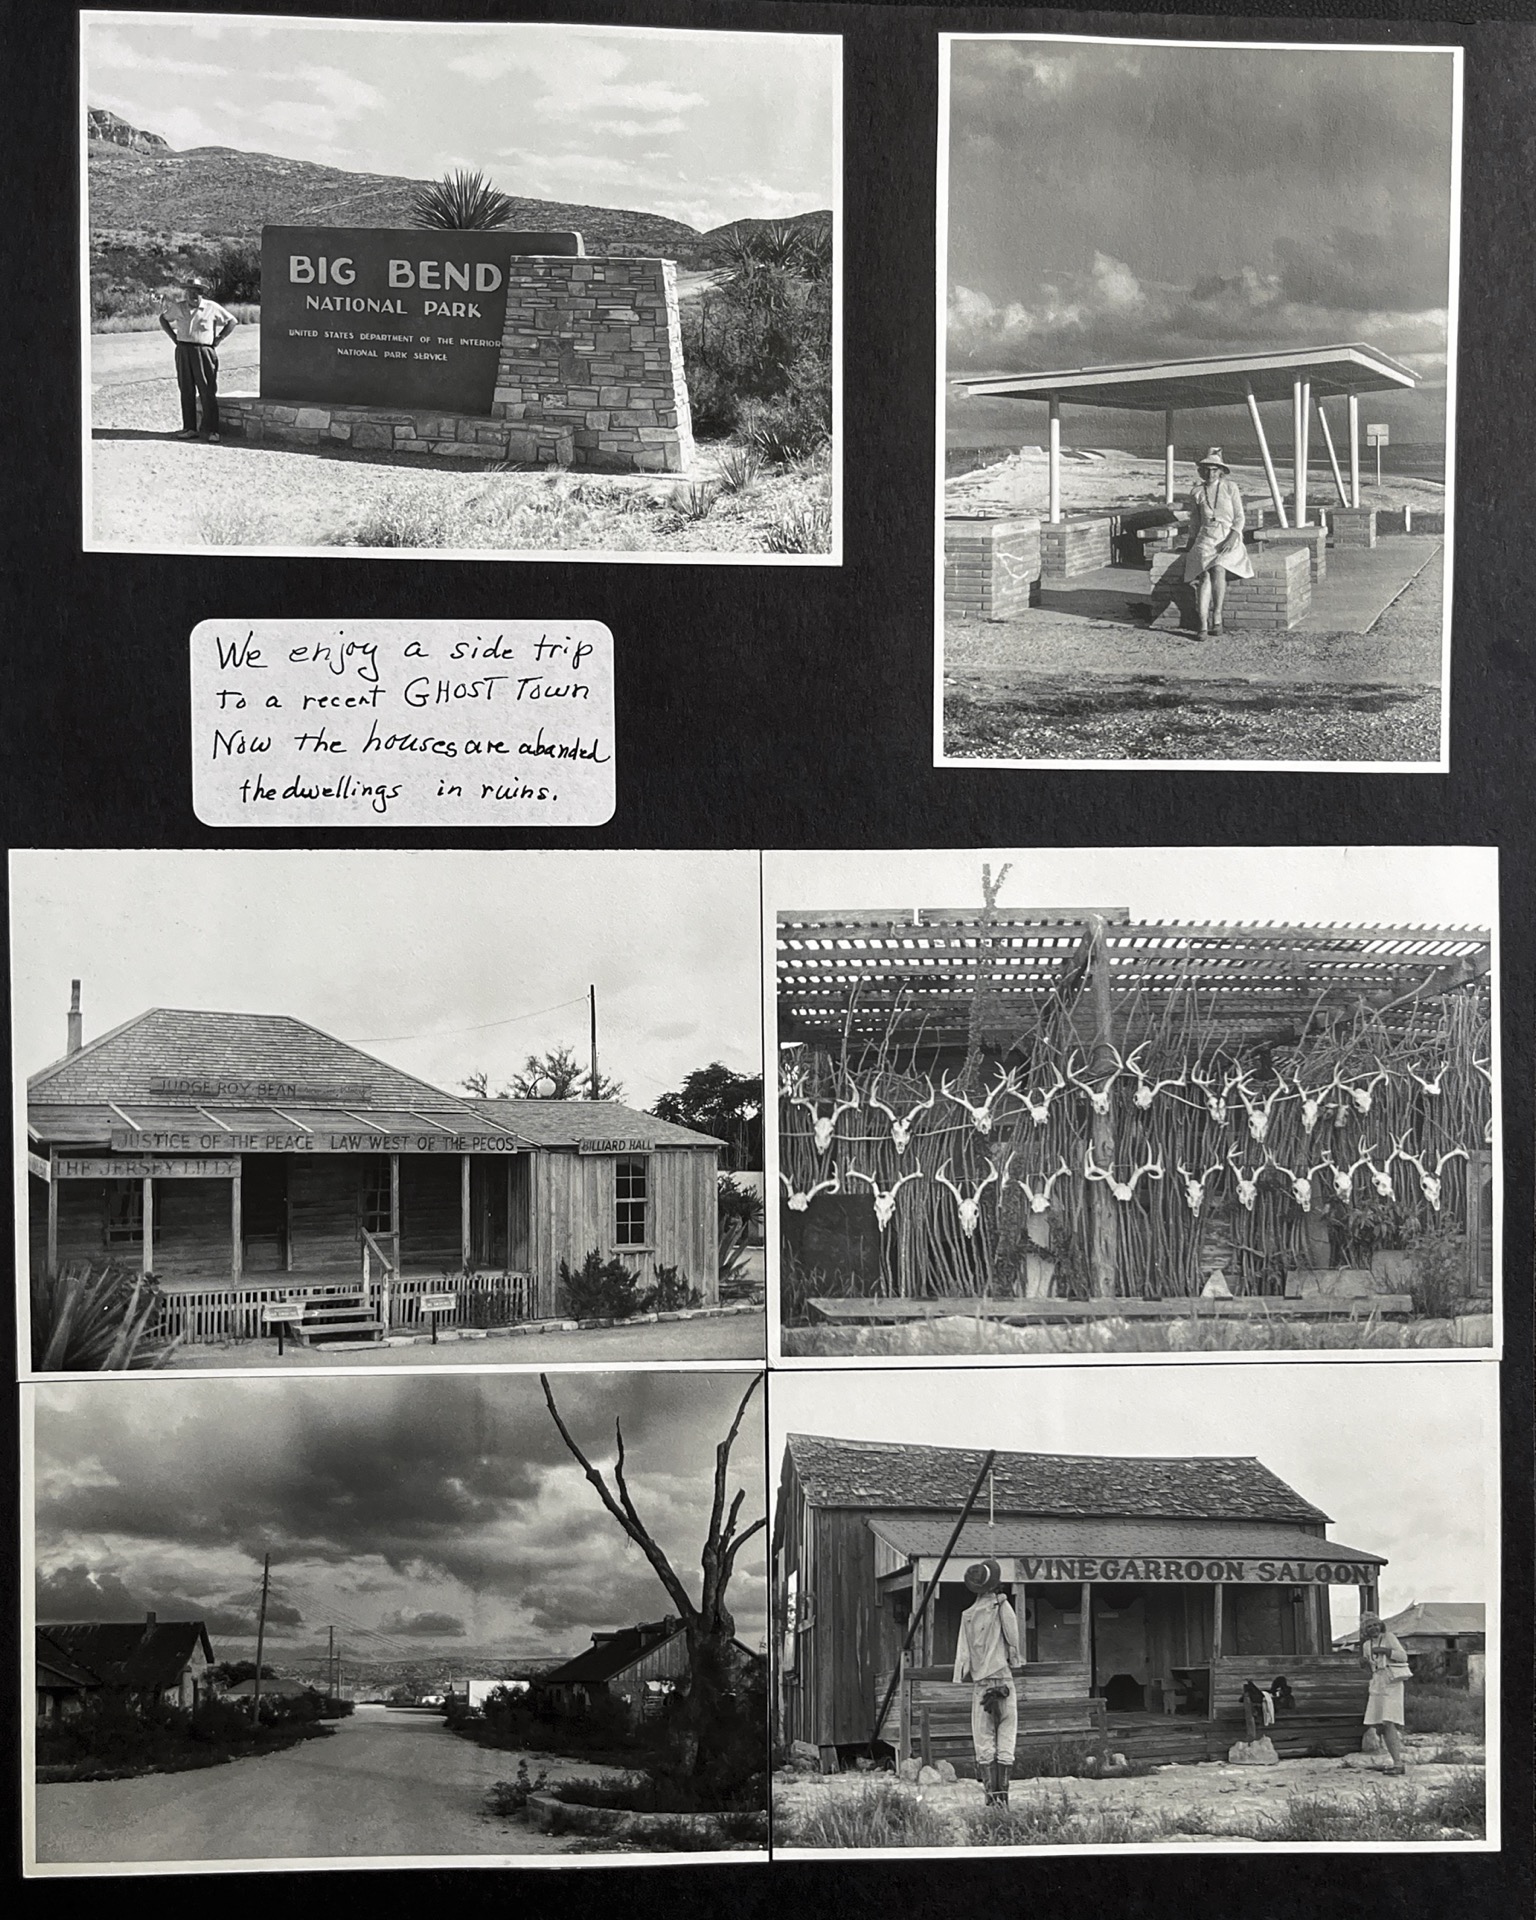 BIG BEND
NATIONAL PARK
UNITED STATES DEPARTMENT OF THE INTERIOR
NATIONAL PARK SERVICE
We enjoy a side trip
To a recent GHOST Town
Now the houses are abanded
the dwellings in ruins.
JUDGE ROY BEAN
JUSTICE OF THE PEACE LAW WEST OF THE PECOS
BILLIARD HALL
THE JERSEY LILLY
VINEGARROON SALOON